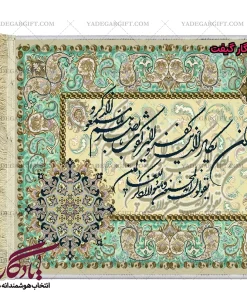 WWW.YADEGARGIFT.COM
YADEGARGIFT.COM
گار گیفت
یکاد الذین کفروا لیزلقونک بابصارهم لما سمعوا الذکر و
یقولون انه لمجنون و ما هو الا ذکر
یادگا
انتخاب هوشمندانه